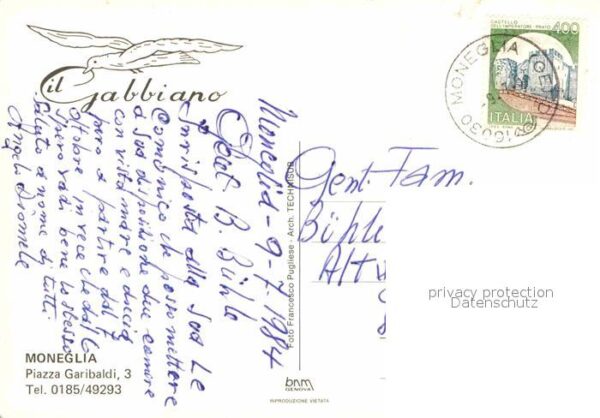 il Gabbiano
Moneglia - 9-7-1984
Gent. B. Bühle
In risposta alla Sua Le
Comunico che posso mettere
a Sua disposizione due camere
con vista mare e doccia
però a partire dal 7
Ottobre invece che dal 6
Spero vadi bene lo stesso
Saluto a nome di tutti
Angeli Diomele
MONEGLIA
Piazza Garibaldi, 3
Tel. 0185/49293
Foto Francesco Pugliese - Arch. TECHNISUB
bnm
GENOVA
RIPRODUZIONE VIETATA
CASTELLO
DELL'IMPERATORE · PRATO
400
ITALIA
16030 MONEGLIA (GE)
Gent. Fam.
Bühle
Altw
privacy protection
Datenschutz